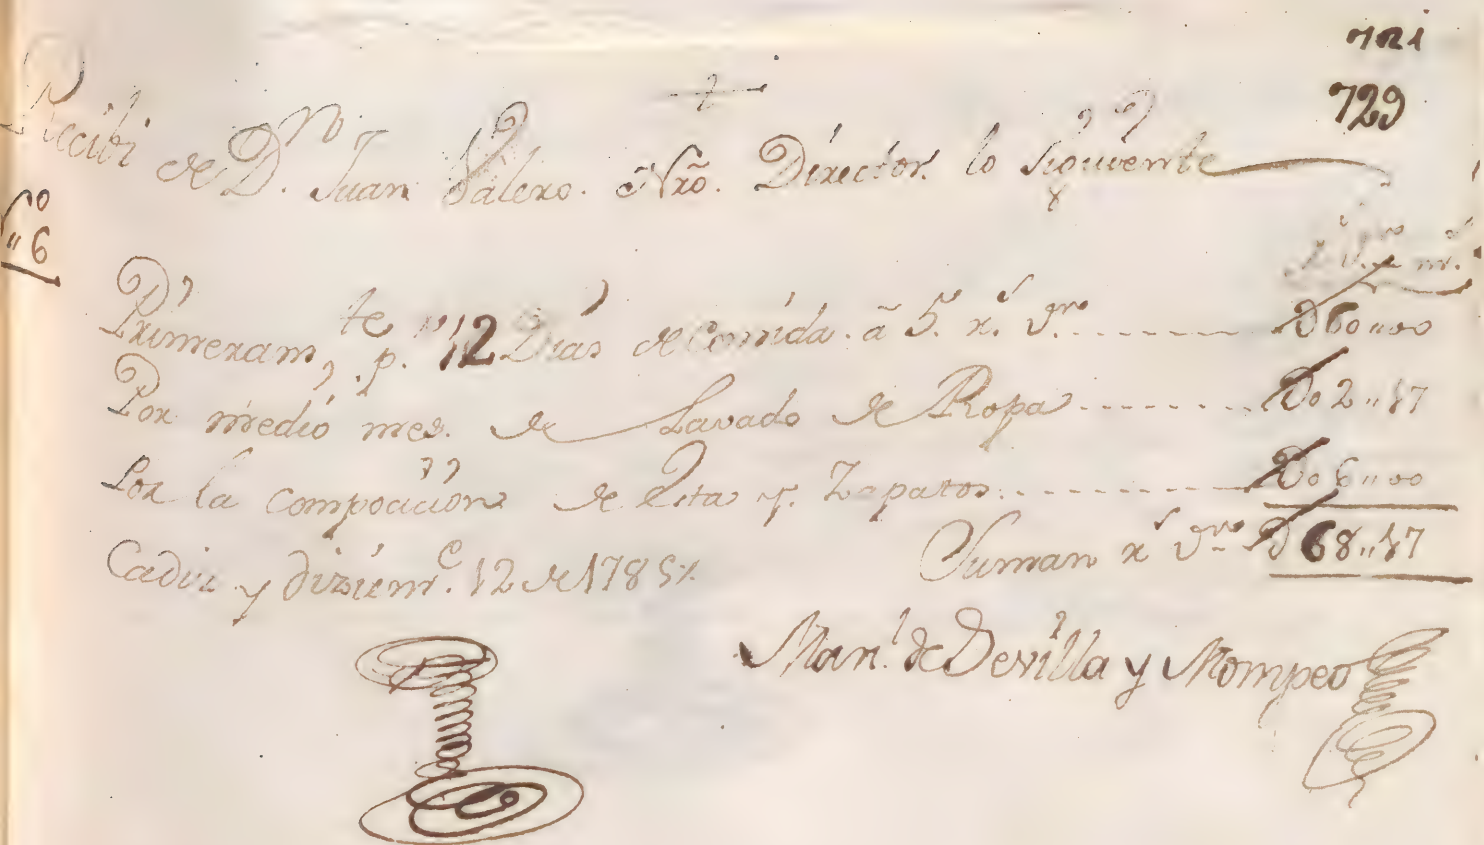 721
729
+
Recibi de Dn. Juan Valero. Nrõ. Director lo siguiente
No
"6
rs. vn. ms.
Primeramte, p. "12 Dias de Comida. â 5. rs. vn. --------- D60"00
Por medio mes. de Lavado de Ropa --------- Do2"17
Por la compocicion de Zapatos --------- Do6"00
Suman rs vn D68"17
Cadiz y Diziemre. 12 de 1785
Manl. de Devilla y Mompeo